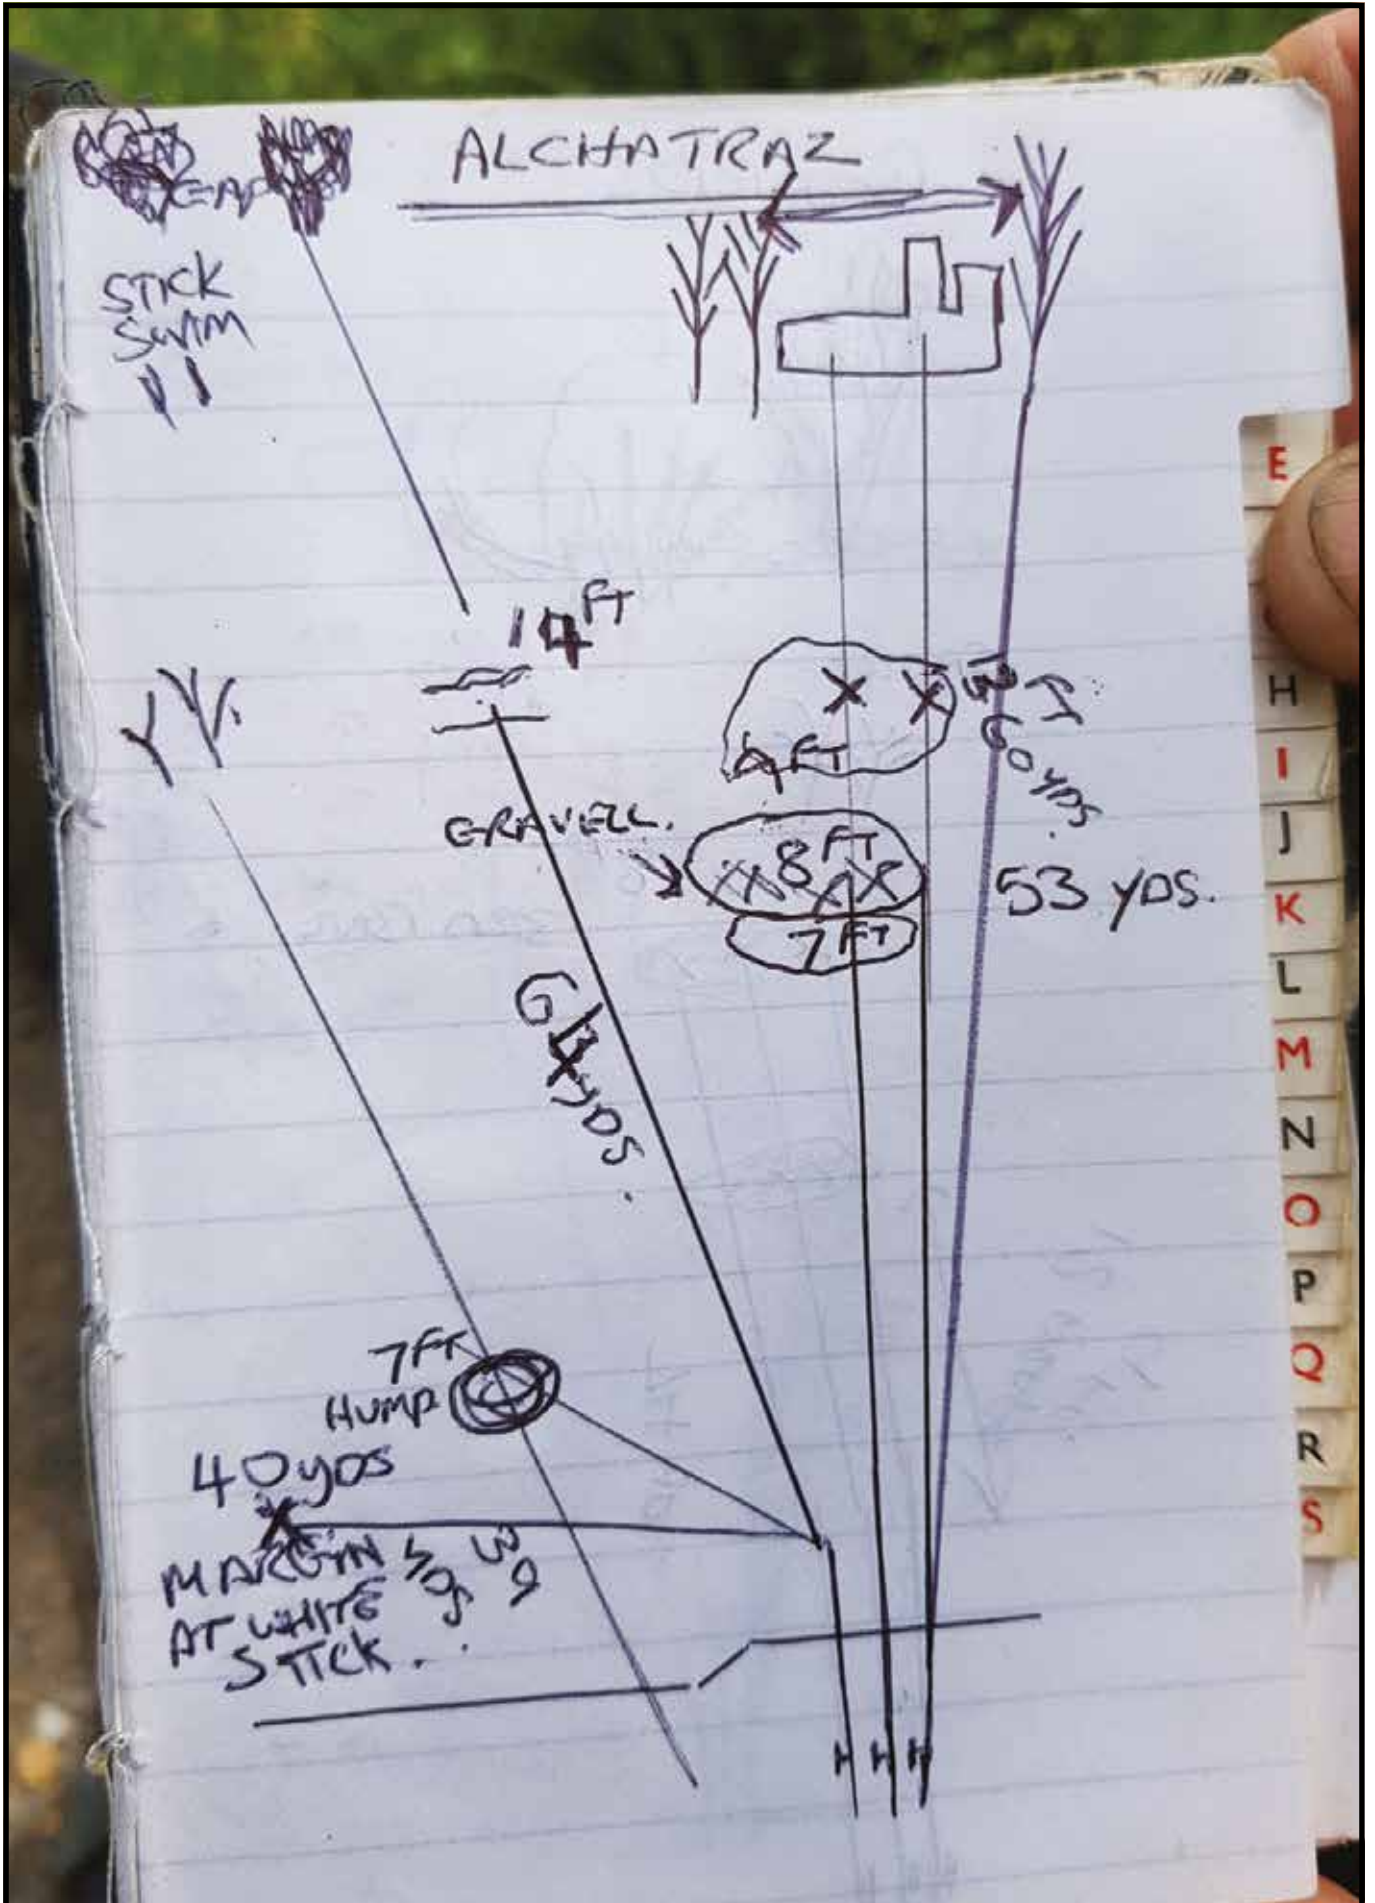 ALCHATRAZ
GAP
STICK
SWIM
14 FT
9 FT
60 YDS.
GRAVELL.
8 FT
53 YDS.
7 FT
YDS.
7 FT
HUMP
40 YDS
MARGIN
AT WHITE
STICK.
E
H
I
J
K
L
M
N
O
P
Q
R
S